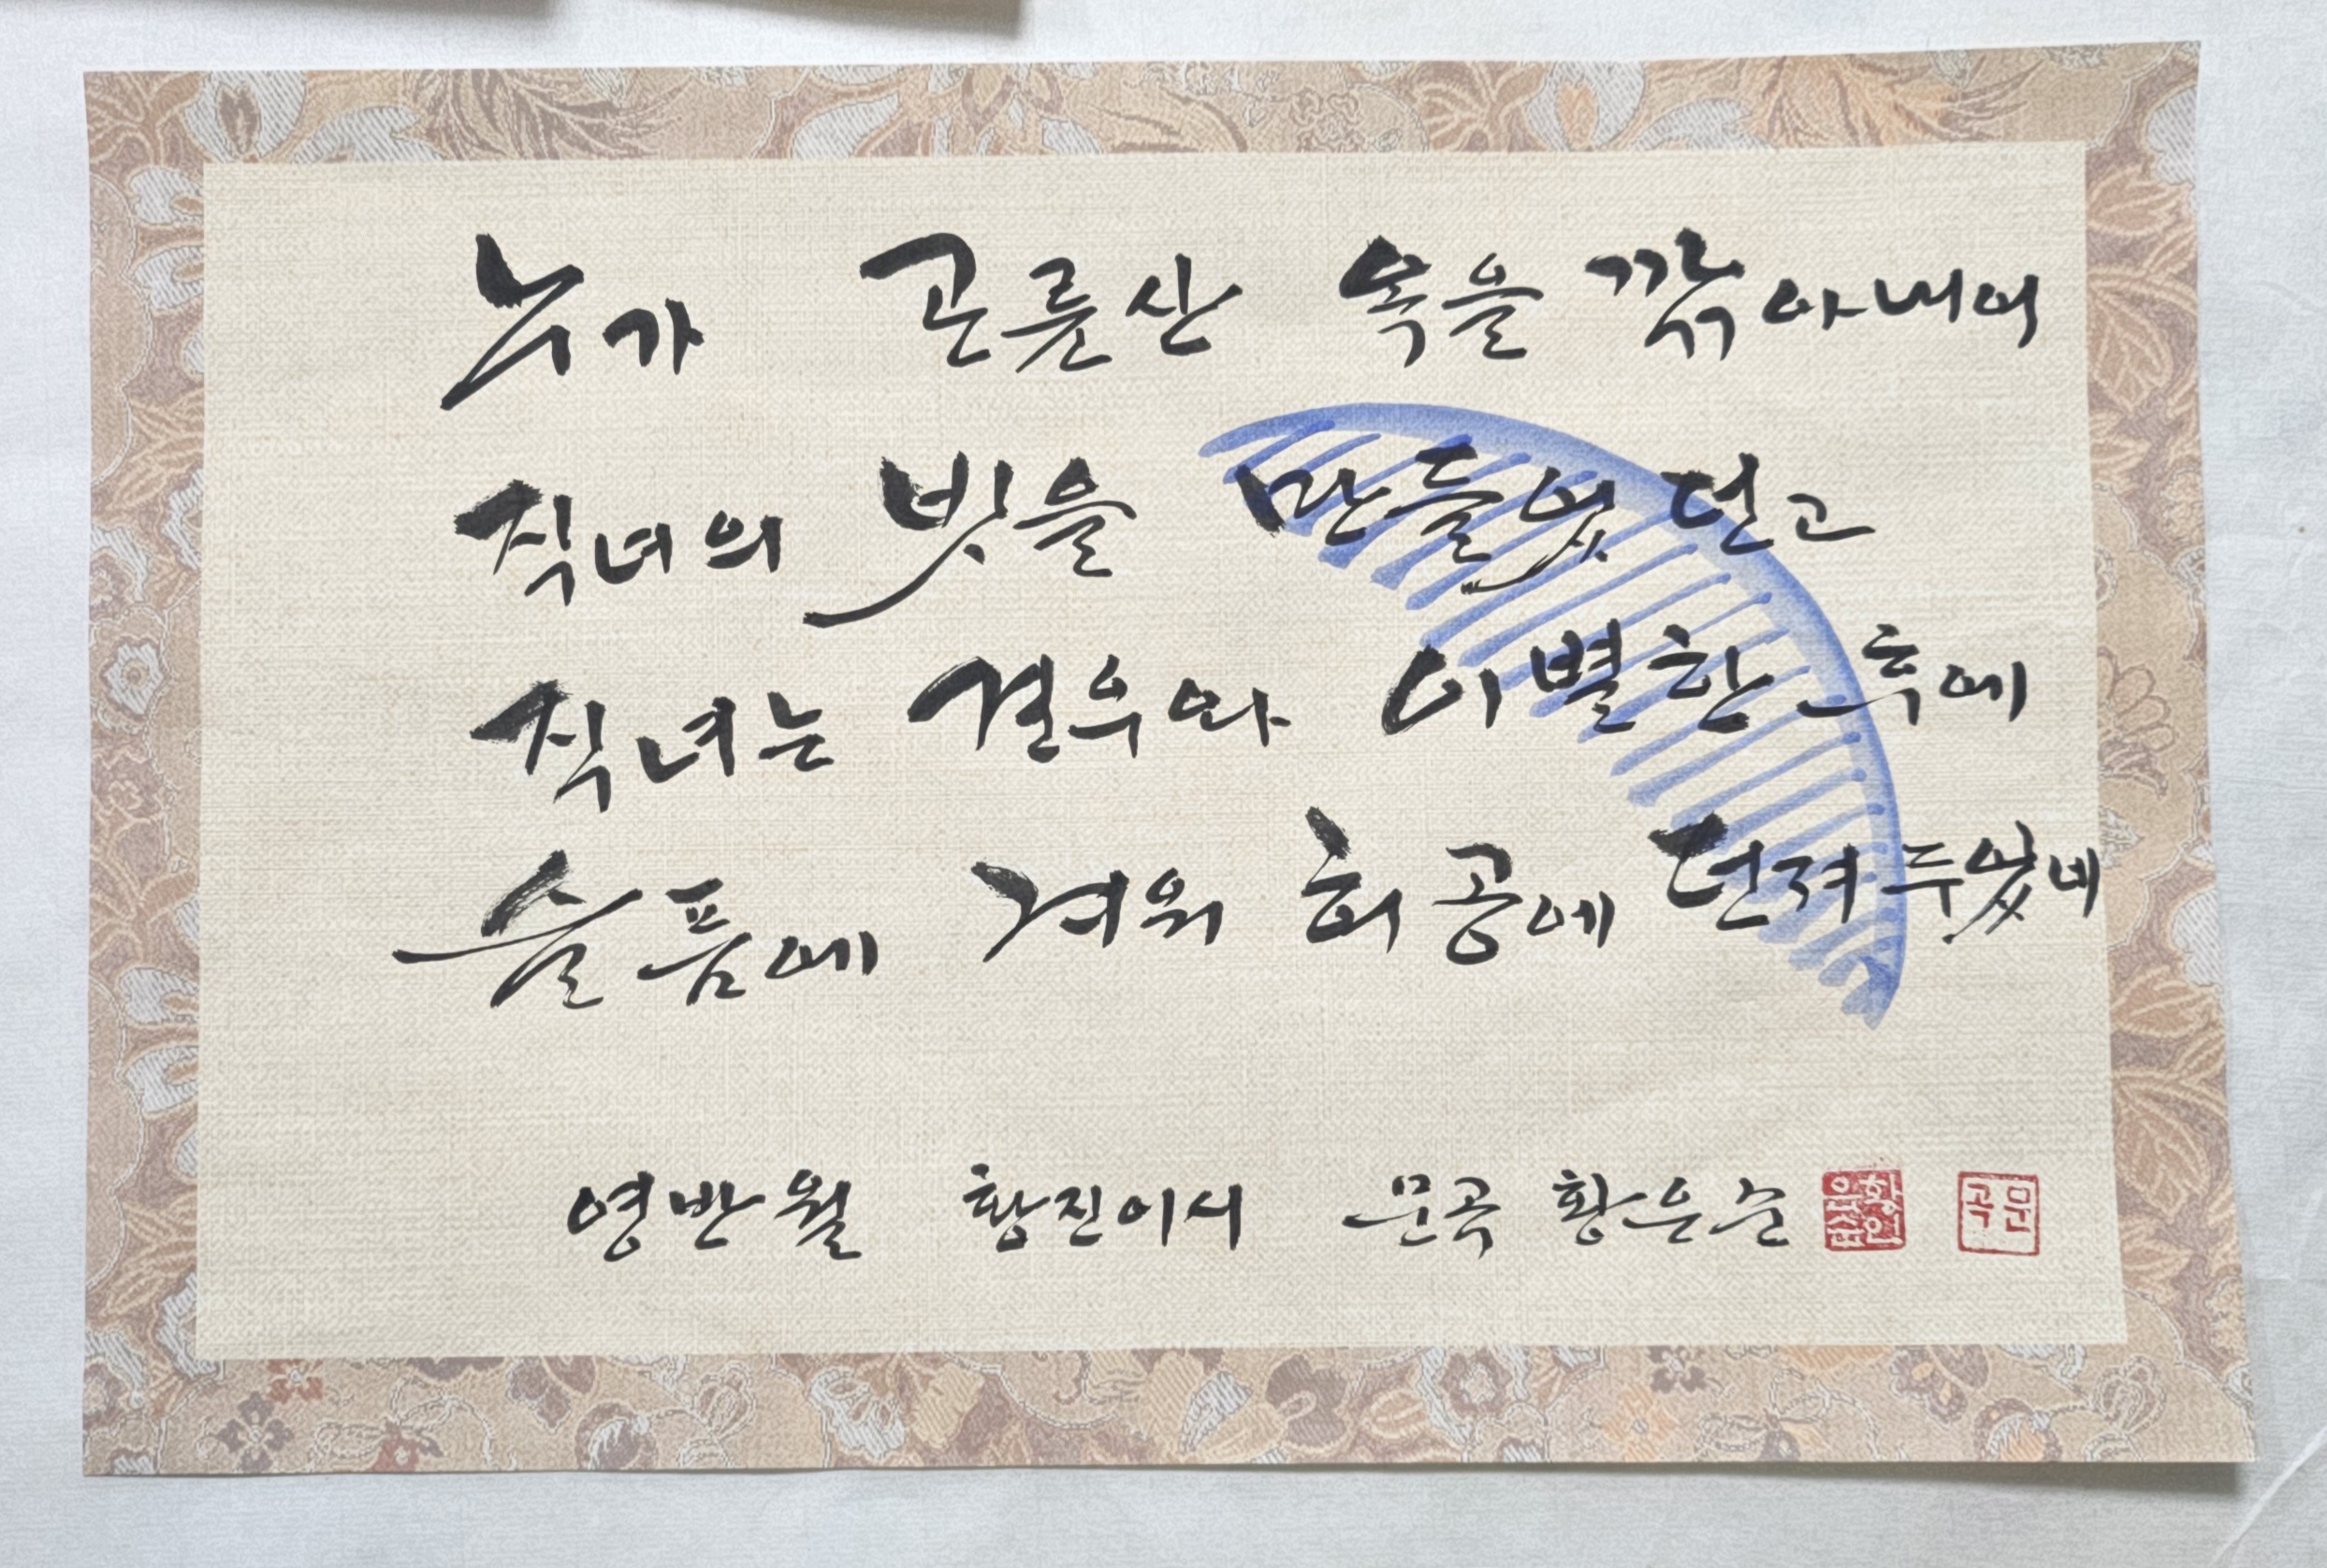 누가 곤륜산 옥을 깎아내어
직녀의 빗을 만들었던고
직녀는 견우와 이별한 후에
슬픔에 겨워 허공에 던져두었네
영반월 황진이시 문곡 황은순
황인은순
문곡